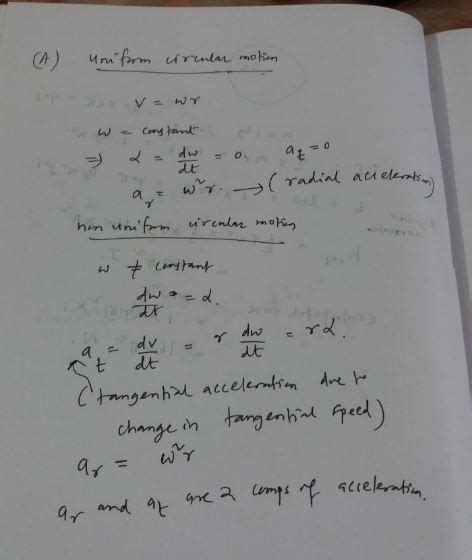 (A) uniform circular motion
V = ωr
ω = constant
⇒ α = dω/dt = 0. a_t = 0
a_r = ω²r. → (radial acceleration)
non uniform circular motion
ω ≠ constant
dω/dt = α.
a_t = dv/dt = r dω/dt = rα.
(tangential acceleration due to
change in tangential speed)
a_r = ω²r
a_r and a_t are 2 comps of acceleration.